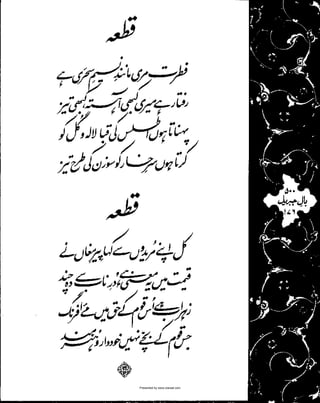 قطعہ
فطرت مری مانندِ نسیمِ سحری ہے
رفتار ہے میری کبھی آہستہ کبھی تیز
پہناتا ہوں اطلس کی قبا لالہ و گل کو
کرتا ہوں سرِ خار کو سوزن کی طرح تیز
قطعہ
کل اپنے مریدوں سے کہا پیرِ مغاں نے
قیمت میں یہ معنی ہے دُرِ ناب سے دہ چند
زہراب ہے اُس قوم کے حق میں مئے افرنگ
جس قوم کے بچے نہیں خوددار و ہنرمند
۵۰۰
بالِ جبریل
۱۷۶
Presented by www.iqbalal.com